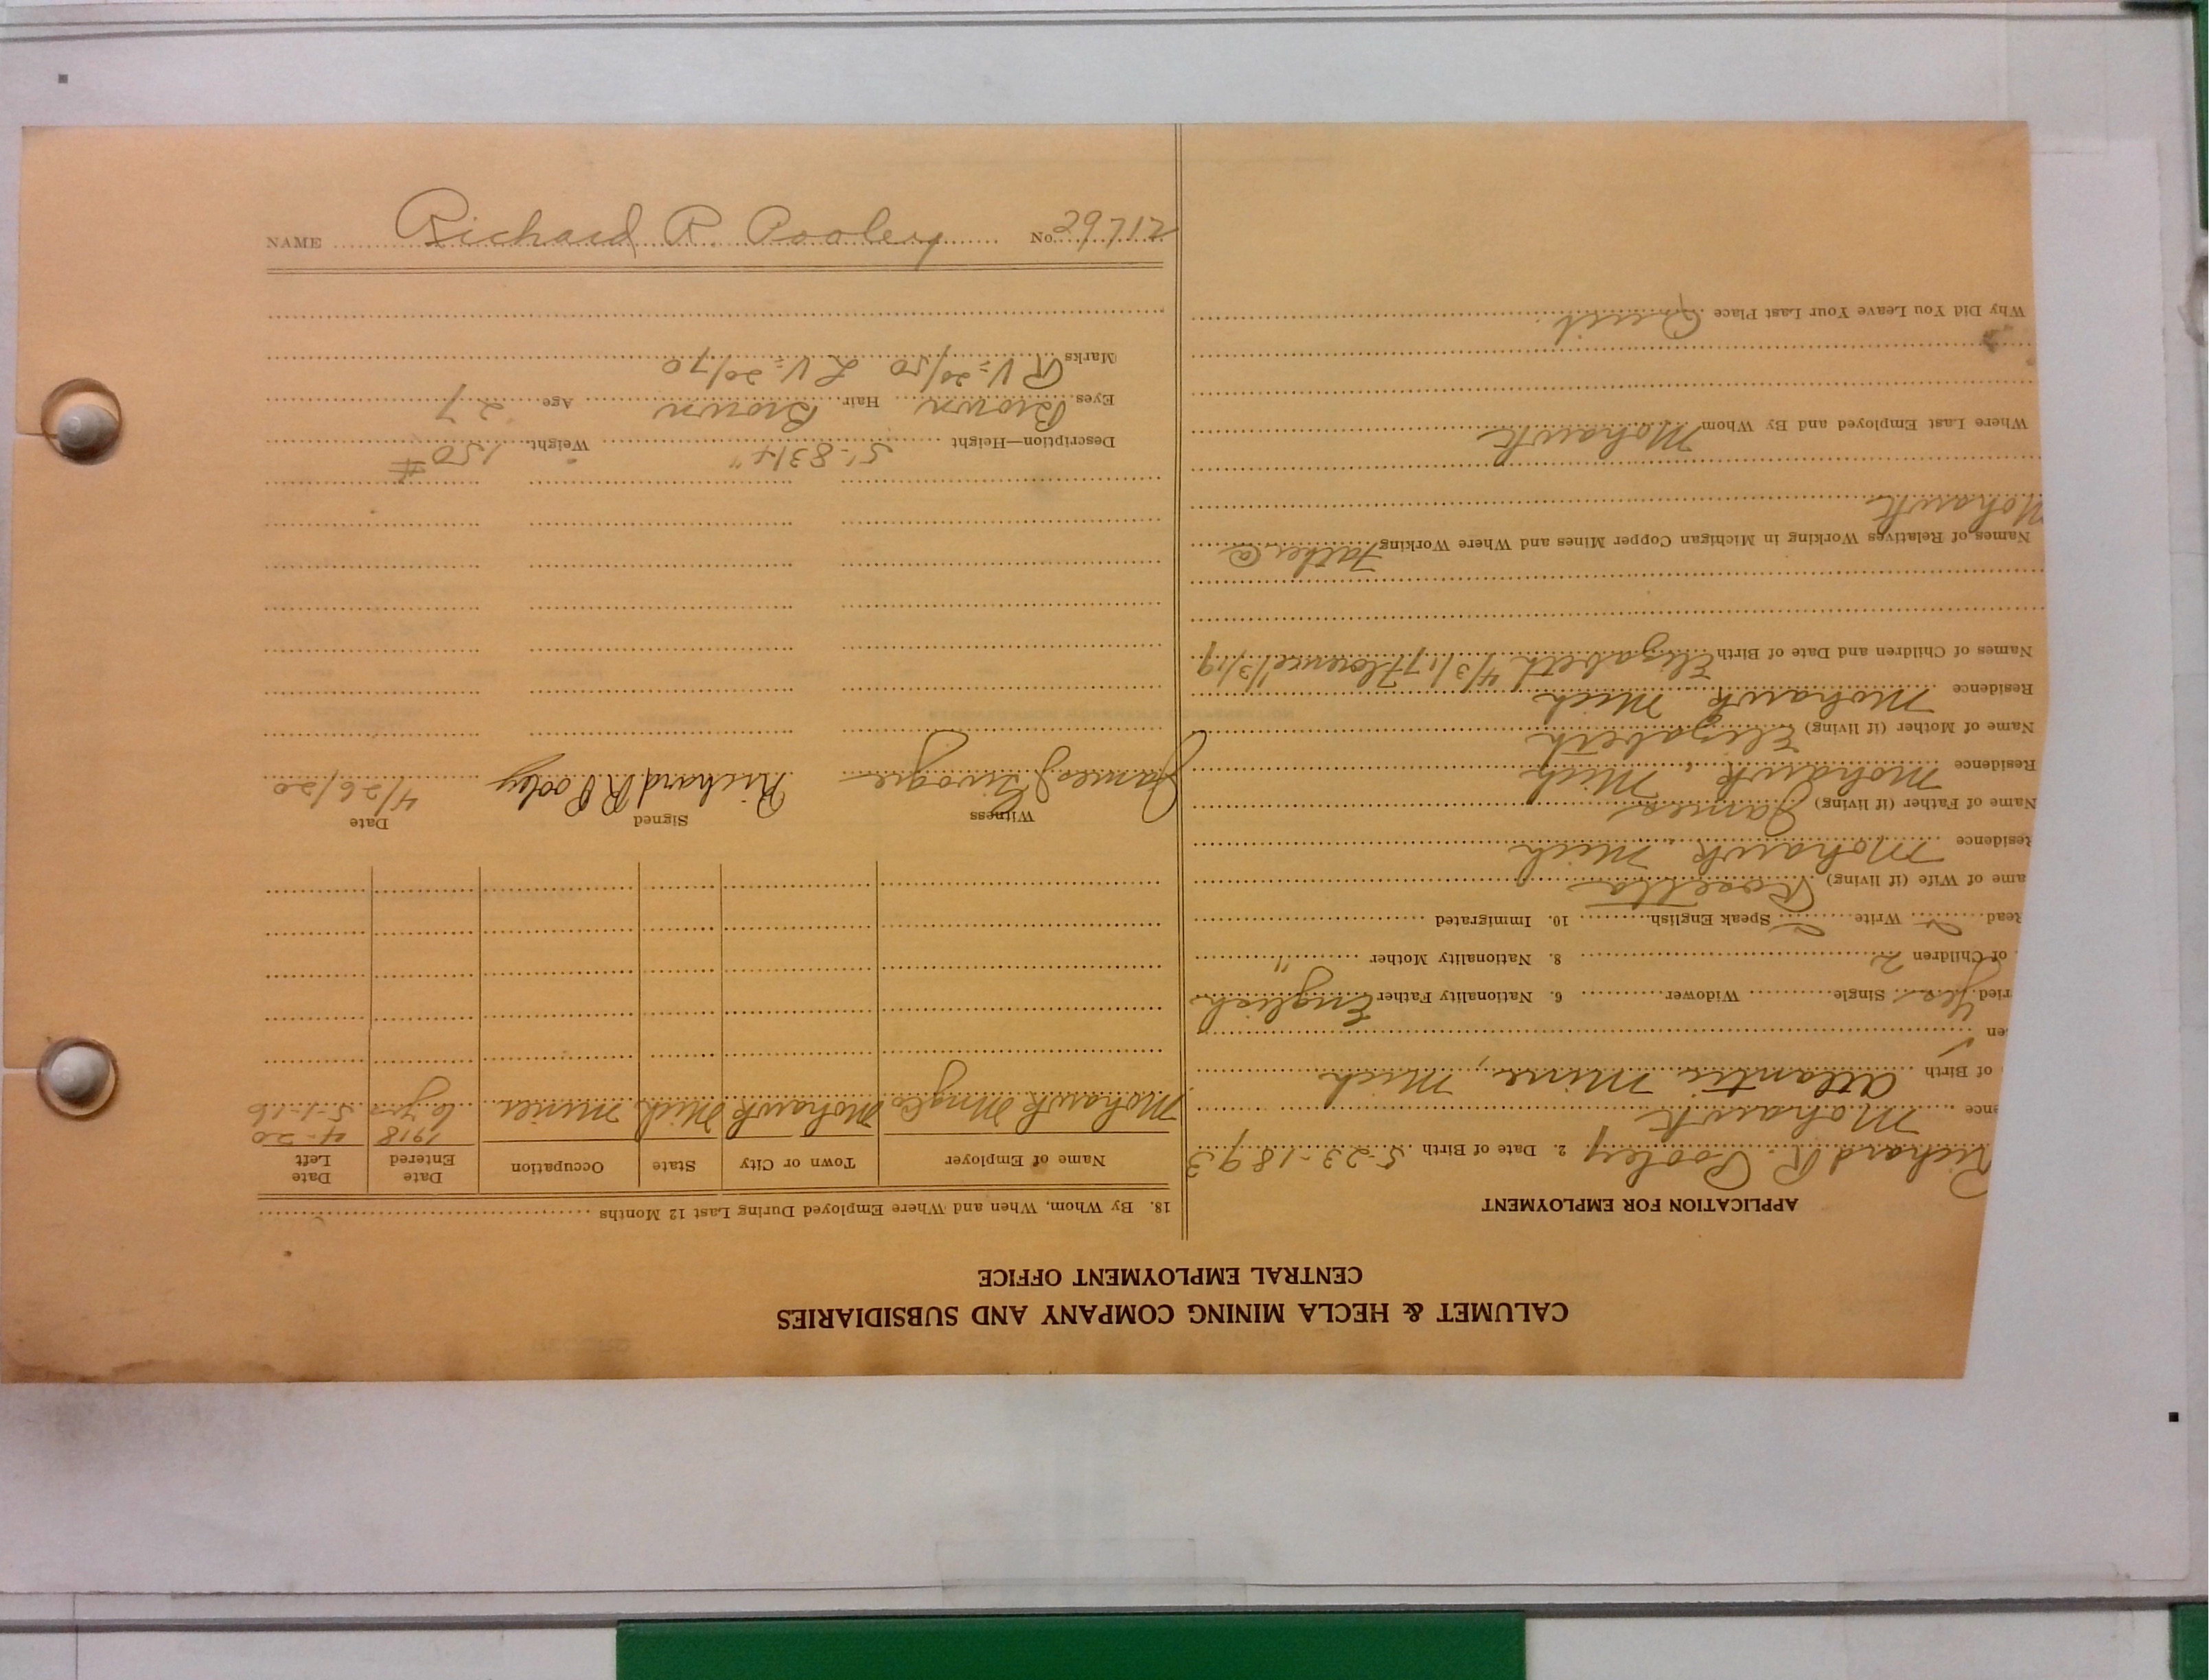 CALUMET & HECLA MINING COMPANY AND SUBSIDIARIES
CENTRAL EMPLOYMENT OFFICE
APPLICATION FOR EMPLOYMENT
Richard R. Pooley 2. Date of Birth 5-23-1893
ence Mohawk
of Birth Atlantic Mine, Mich
en
ried Yes Single Widower 6. Nationality Father English
of Children 2 8. Nationality Mother "
Read Write Speak English 10. Immigrated
ame of Wife (if living) Rosetta
Residence Mohawk, Mich
Name of Father (if living) James
Residence Mohawk, Mich
Name of Mother (if living) Elizabeth
Residence Mohawk Mich
Names of Children and Date of Birth Elizabeth 4/3/17 Florence 1/3/19
Names of Relatives Working in Michigan Copper Mines and Where Working Father @
Mohawk
Where Last Employed and By Whom Mohawk
Why Did You Leave Your Last Place Quit
18. By Whom, When and Where Employed During Last 12 Months
Name of Employer Town or City State Occupation Date Entered Date Left
1918 4-20
Mohawk Mng Co Mohawk Mich Miner 6 yrs 5-1-16
Witness Signed Date
James Richard R Pooley 4/26/20
Description—Height 5'-8 3/4" Weight 150 #
Eyes Brown Hair Brown Age 27
Marks RV=20/50 LV=20/70
NAME Richard R. Pooley No. 29712